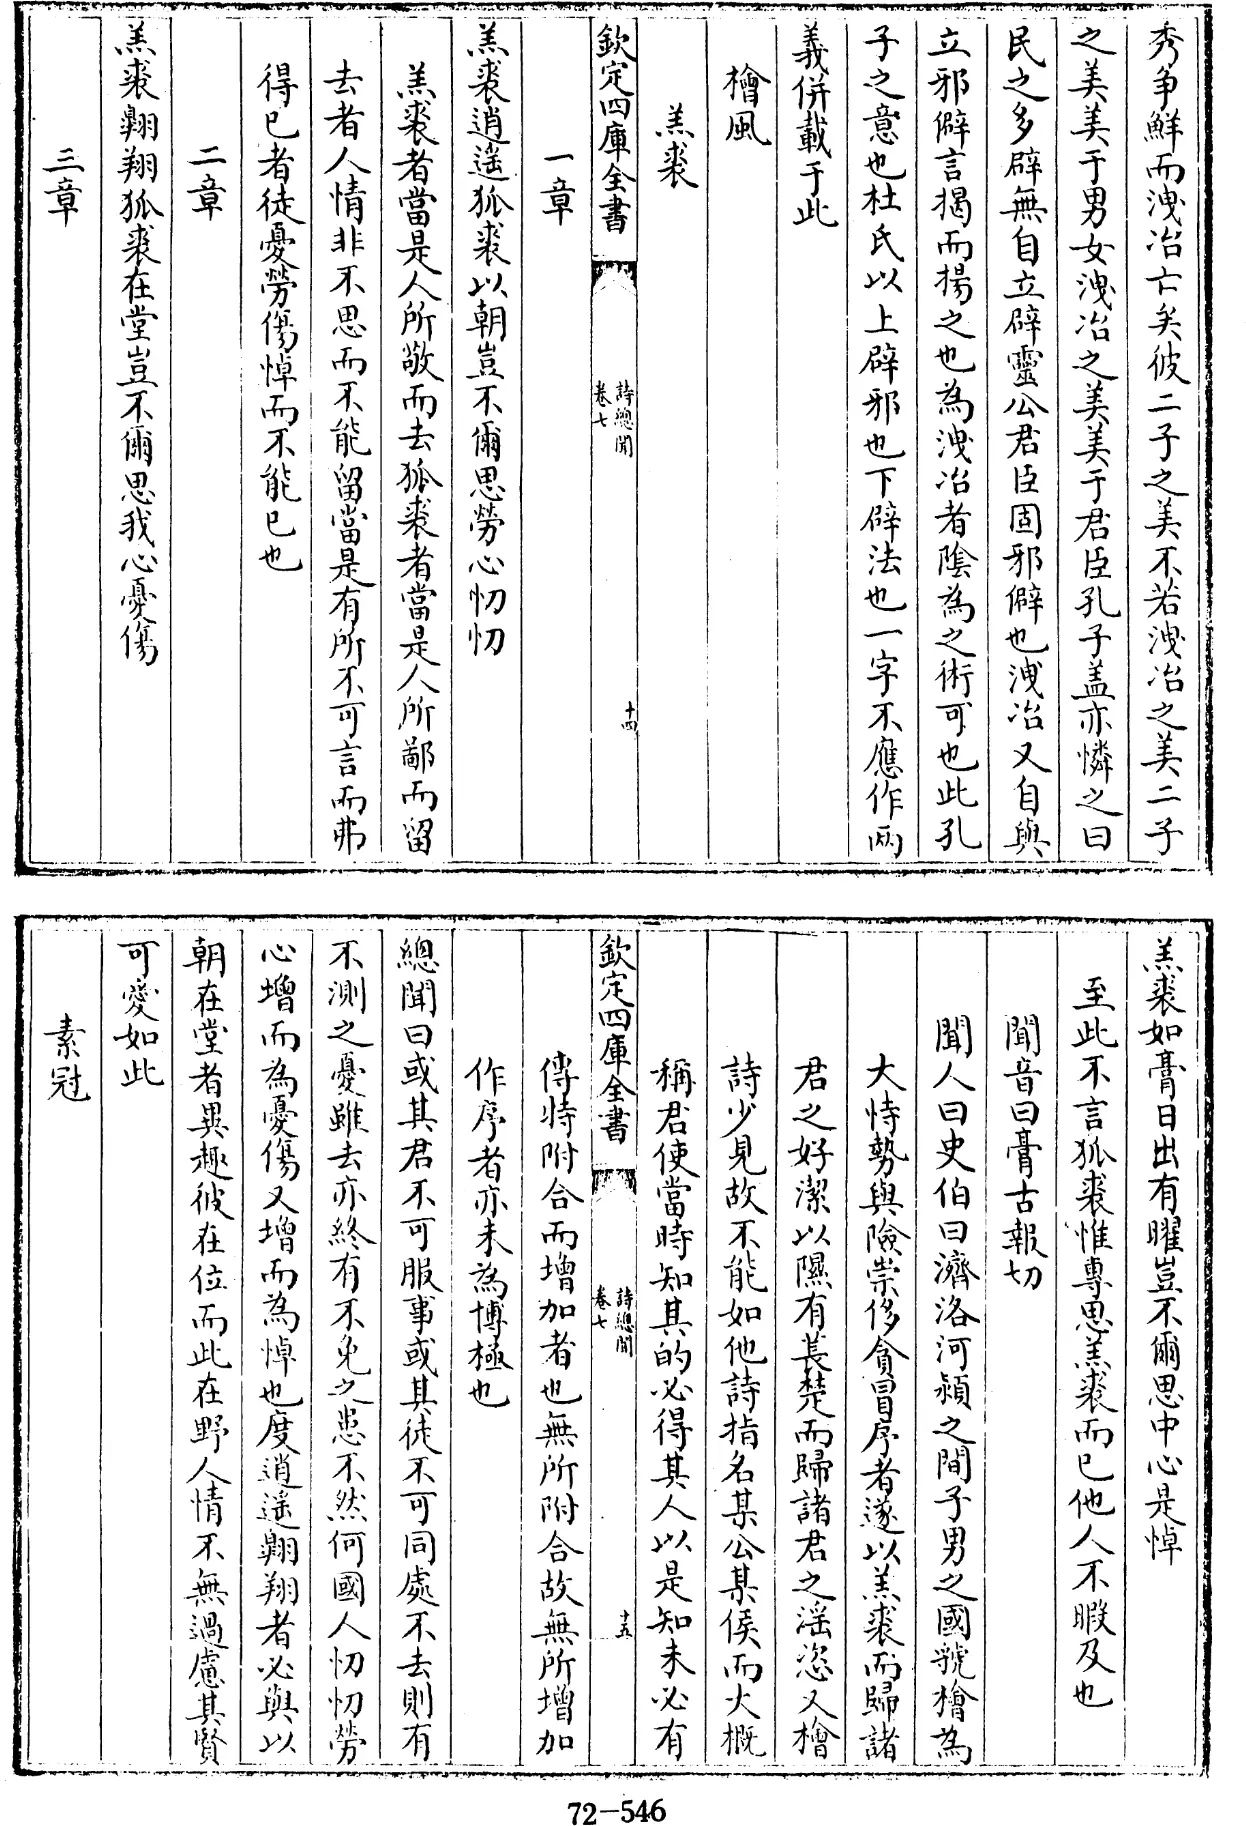 秀爭鮮而洩冶亡矣彼二子之美不若洩冶之美二子
之美美于男女洩冶之美美于君臣孔子盖亦憐之曰
民之多辟無自立辟靈公君臣固邪僻也洩冶又自與
立邪僻言揭而揚之也為洩冶者隂為之術可也此孔
子之意也杜氏以上辟邪也下辟法也一字不應作兩
義併載于此
檜風
羔裘
欽定四庫全書
詩總聞
卷七
十四
一章
羔裘逍遥狐裘以朝豈不爾思勞心忉忉
羔裘者當是人所敬而去狐裘者當是人所鄙而留
去者人情非不思而不能留當是有所不可言而弗
得已者徒憂勞傷悼而不能已也
二章
羔裘翱翔狐裘在堂豈不爾思我心憂傷
三章
羔裘如膏日出有曜豈不爾思中心是悼
至此不言狐裘惟專思羔裘而已他人不暇及也
聞音曰膏古報切
聞人曰史伯曰濟洛河潁之間子男之國虢檜為
大恃勢與險崇侈貪冒序者遂以羔裘而歸諸
君之好潔以隰有萇楚而歸諸君之淫恣又檜
詩少見故不能如他詩指名某公某侯而大概
稱君使當時知其的必得其人以是知未必有
欽定四庫全書
詩總聞
卷七
十五
傳特附合而增加者也無所附合故無所增加
作序者亦未為博極也
總聞曰或其君不可服事或其徒不可同處不去則有
不測之憂雖去亦終有不免之患不然何國人忉忉勞
心增而為憂傷又增而為悼也度逍遥翱翔者必與以
朝在堂者異趣彼在位而此在野人情不無過慮其賢
可愛如此
素冠
72-546